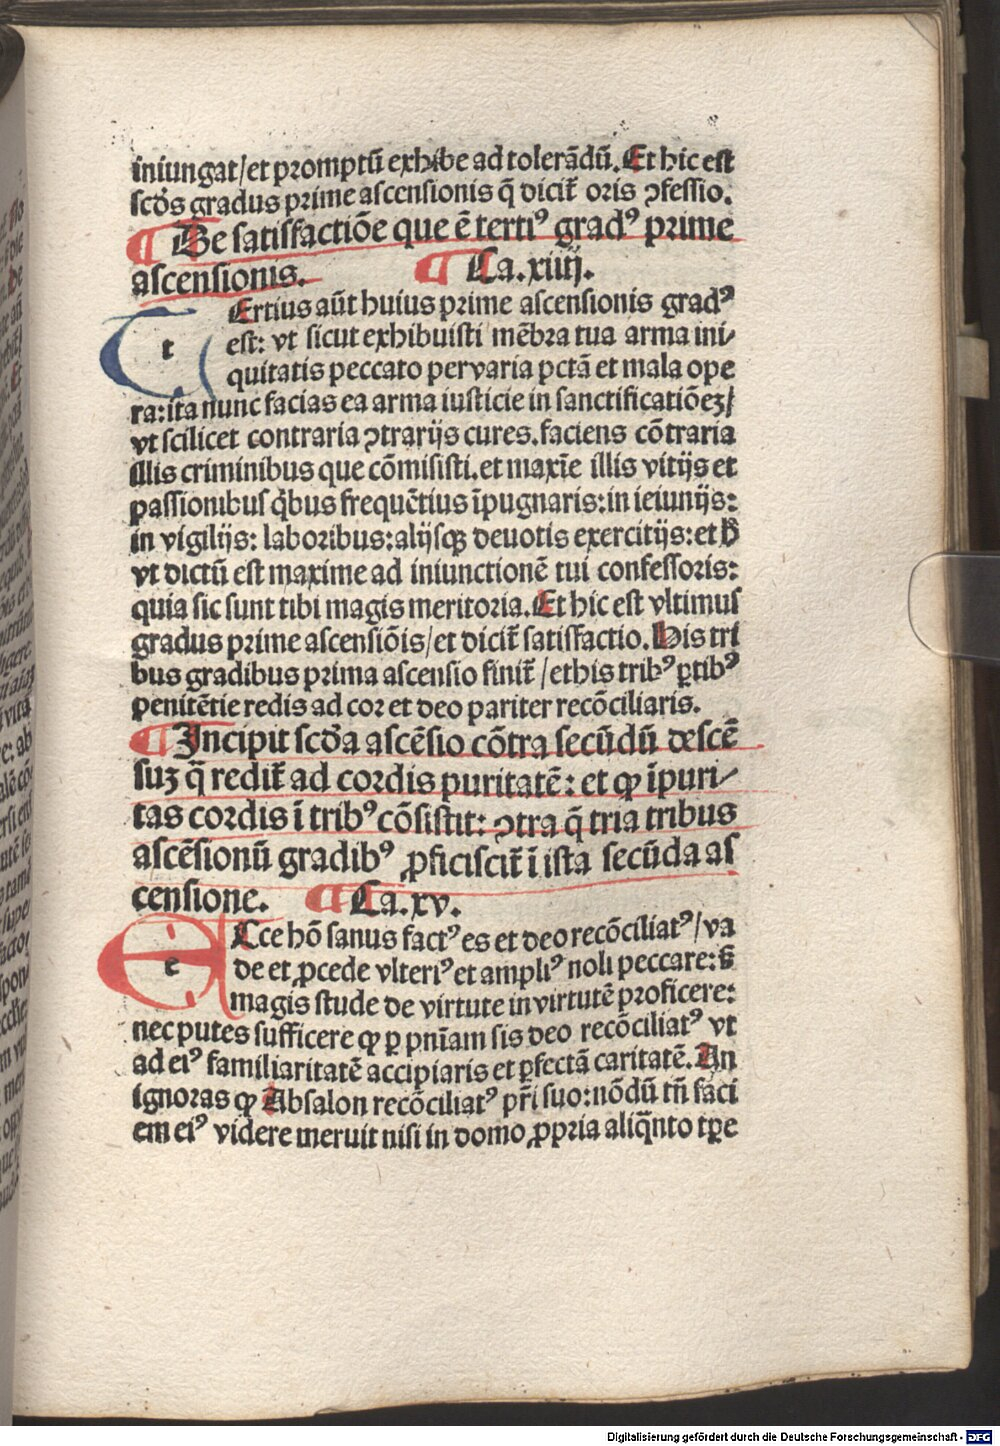 iniungat/et promptū exhibe ad tolerādū. Et hic est
scd̓s gradus prime ascensionis q̄ dicit̄ oris ꝯfessio.
¶ De satisfactiōe que ē tertiꝰ gradꝰ prime
ascensionis. ¶ Ca.xiiij.
tErtius aūt huius prime ascensionis gradꝰ
est: vt sicut exhibuisti mēbra tua arma ini-
quitatis peccato per varia pctā et mala ope
ra: ita nunc facias ea arma iusticie in sanctificatiōeꝫ/
vt scilicet contraria ꝯtrarijs cures. faciens cōtraria
illis criminibus que cōmisisti. et maxīe illis vitijs et
passionibus q̓bus frequētius īpugnaris: in ieiunijs:
in vigilijs: laboribus: alijsqꝫ deuotis exercitijs: et h̓
vt dictū est maxime ad iniunctionē tui confessoris:
quia sic sunt tibi magis meritoria. Et hic est vltimus
gradus prime ascensiōis/et dicit̄ satisfactio. His tri
bus gradibus prima ascensio finit̄/et his tribꝰ ꝑtibꝰ
penitētie redis ad cor et deo pariter recōciliaris.
¶ Incipit scd̓a ascēsio cōtra secūdū descē
suꝫ q̄ redit̄ ad cordis puritatē: et ꝙ īpuri-
tas cordis ī tribꝰ cōsistit: ꝯtra q̄ tria tribus
ascēsionū gradibꝰ ꝓficiscit̄ ī ista secūda as
censione. ¶ Ca.xv.
eCce hō sanus factꝰ es et deo recōciliatꝰ/va
de et ꝓcede vlteriꝰ et ampliꝰ noli peccare: s̓
magis stude de virtute in virtutē proficere:
nec putes sufficere ꝙ ꝑ pn̄iam sis deo recōciliatꝰ vt
ad eiꝰ familiaritatē accipiaris et ꝑfectā caritatē. An
ignoras ꝙ Absalon recōciliatꝰ pr̄i suo: nōdū tn̄ faci
em eiꝰ videre meruit nisi in domo ꝓpria aliq̄nto tꝑe
Digitalisierung gefördert durch die Deutsche Forschungsgemeinschaft - DFG